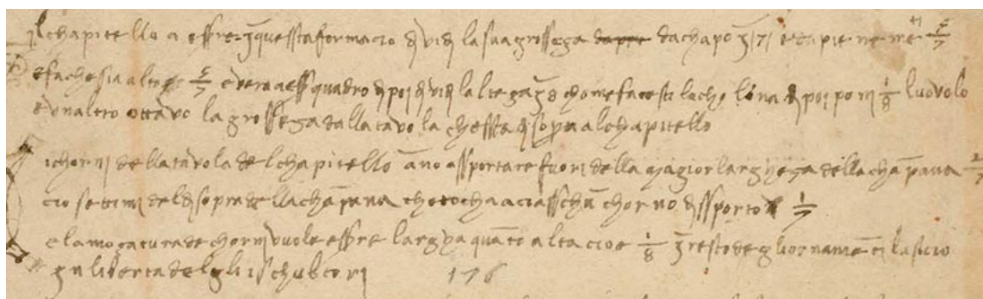 il chapitello a essere in questa formacio e dividi la sua grossega da chapo in 7 e da pie ne me 5/7
e fa che sia alto 5/7 e vera a essere quadro di poi dividi lalteza in 8 chome facesti la cholona di poi poni 1/8 luovolo
e un altro ottavo la grossega dalla tavola che sta di sopra al chapitello
i chorni della tavola del chapitello ano assportare fuori della magior larghega della chāpana 2/7
cio settimi del di sopra della chāpana che tocha a ciasschū chorno di ssporto 1/7
e la mozatura de chorni vuole essere largha quāto alta cioe 1/8 il resto degli ornamēti lascio
in liberta delgli ischultori 176